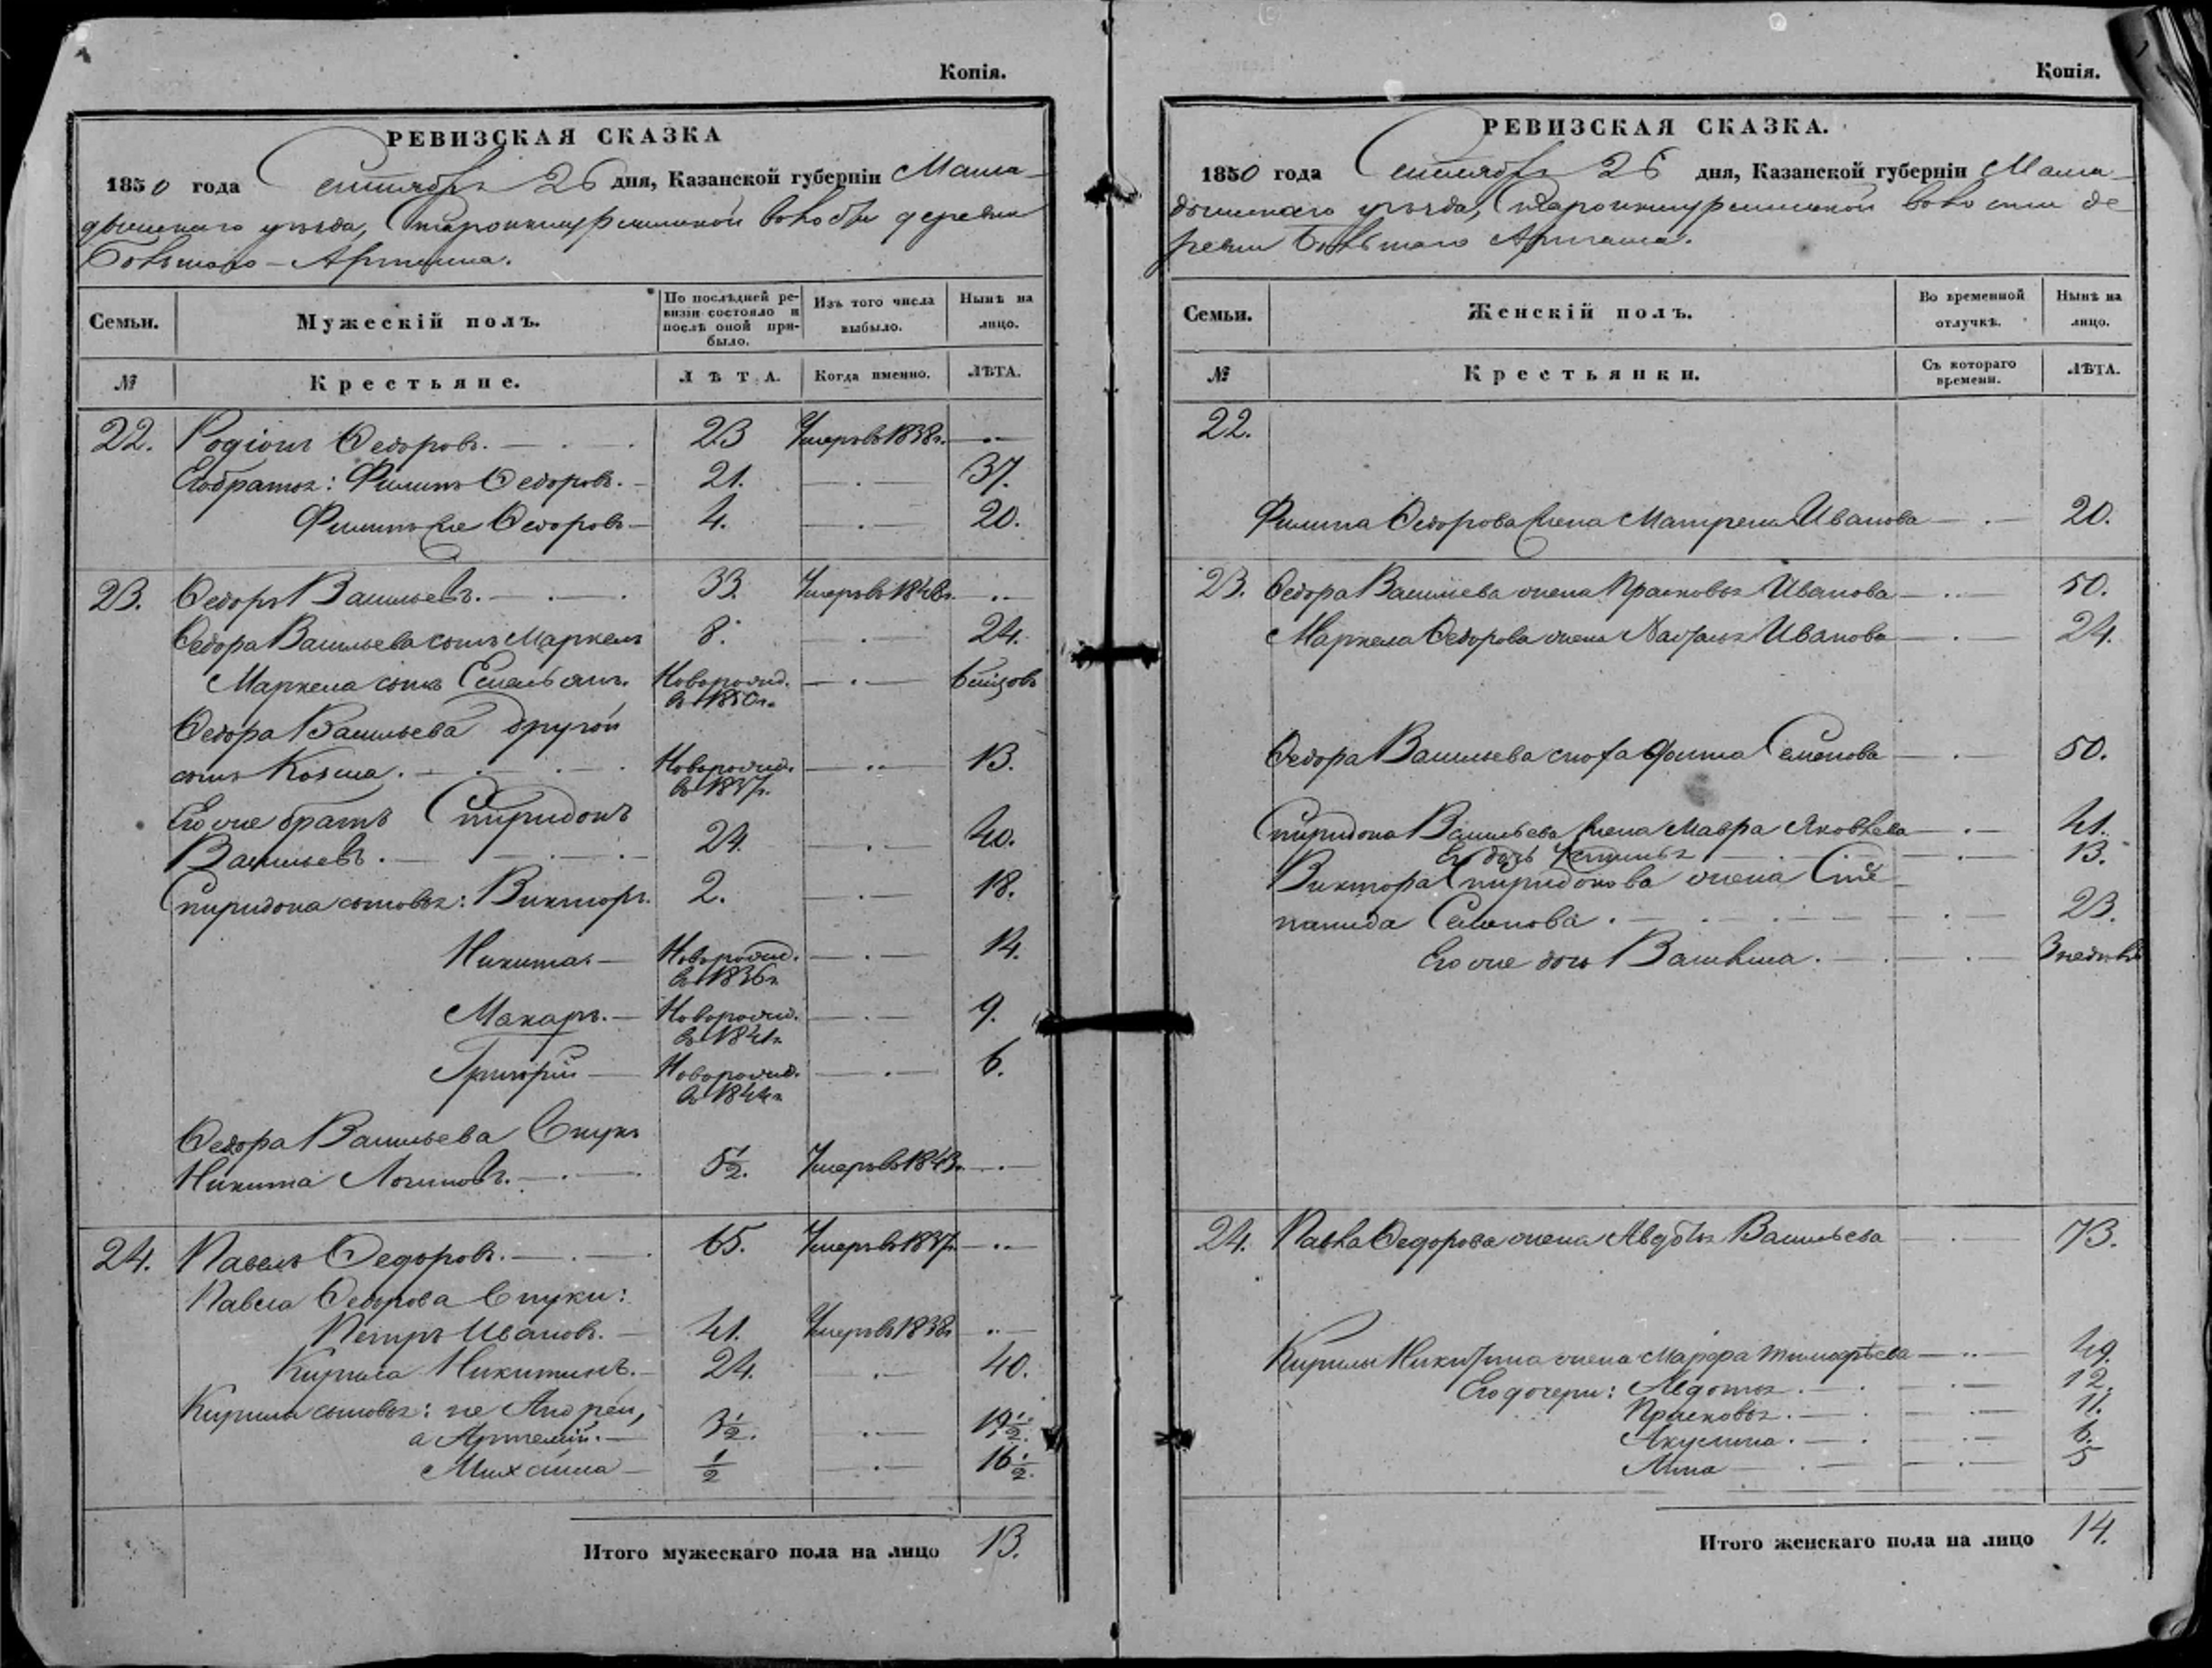 Копія.
РЕВИЗСКАЯ СКАЗКА
1850 года Сентября 26 дня, Казанской губерніи Мама-
дышскаго уѣзда, Старокишуриминской волости деревни
Большаго-Арташа.
Семьи. Мужескій полъ. По послѣдней ре-визіи состояло и послѣ оной при-было. Изъ того числа выбыло. Нынѣ на лицо.
№ Крестьяне. ЛѢТА. Когда именно. ЛѢТА.
22. Родіонъ Ѳедоровъ. 23 Умеръ въ 1838 г.
Его братья: Филипъ Ѳедоровъ. 21. 37.
Филипъ же Ѳедоровъ 4. 20.
23. Ѳедоръ Васильевъ. 33. Умеръ въ 1848 г.
Ѳедора Васильева сынъ Маркелъ 8. 24.
Маркела сынъ Емельянъ. Новорожд. въ 1850 г.
Ѳедора Васильева другой
сынъ Козма. Новорожд. въ 1837 г. 13.
Его же братъ Спиридонъ
Васильевъ. 24. 40.
Спиридона сыновья: Викторъ. 2. 18.
Никита. Новорожд. въ 1836 г. 14.
Макаръ. Новорожд. въ 1841 г. 9.
Григорій Новорожд. въ 1844 г. 6.
Ѳедора Васильева внукъ
Никита Логиновъ. 5 1/2. Умеръ въ 1843 г.
24. Павелъ Ѳедоровъ. 65. Умеръ въ 1837 г.
Павла Ѳедорова внуки:
Петръ Ивановъ. 41. Умеръ въ 1838 г.
Кирила Никитинъ. 24. 40.
Кирилы сыновья: не Андрей,
а Артемій. 3 1/2. 19 1/2.
Михайла 1/2 16 1/2.
Итого мужескаго пола на лицо 13.
Копія.
РЕВИЗСКАЯ СКАЗКА.
1850 года Сентября 26 дня, Казанской губерніи Мама-
дышскаго уѣзда, Старокишуриминской волости де-
ревни Большаго Арташа.
Семьи. Женскій полъ. Во временной отлучкѣ. Нынѣ на лицо.
№ Крестьянки. Съ котораго времени. ЛѢТА.
22.
Филипа Ѳедорова жена Матрена Иванова 20.
23. Ѳедора Васильева жена Прасковья Иванова 50.
Маркела Ѳедорова жена Наталья Иванова 24.
Ѳедора Васильева сноха Семенова 50.
Спиридона Васильева жена Мавра Яковлева 41.
Его дочь Устинья 13.
Виктора Спиридонова жена Сте-
панида Семенова. 23.
Его же дочь Васильиса. 3 недѣль
24. Павла Ѳедорова жена Авдотья Васильева 73.
Кирилы Никитина жена Марфа Тимофѣева 49.
Его дочери: Авдотья. 12.
Прасковья. 11.
Акулина. 6.
Анна 5
Итого женскаго пола на лицо 14.